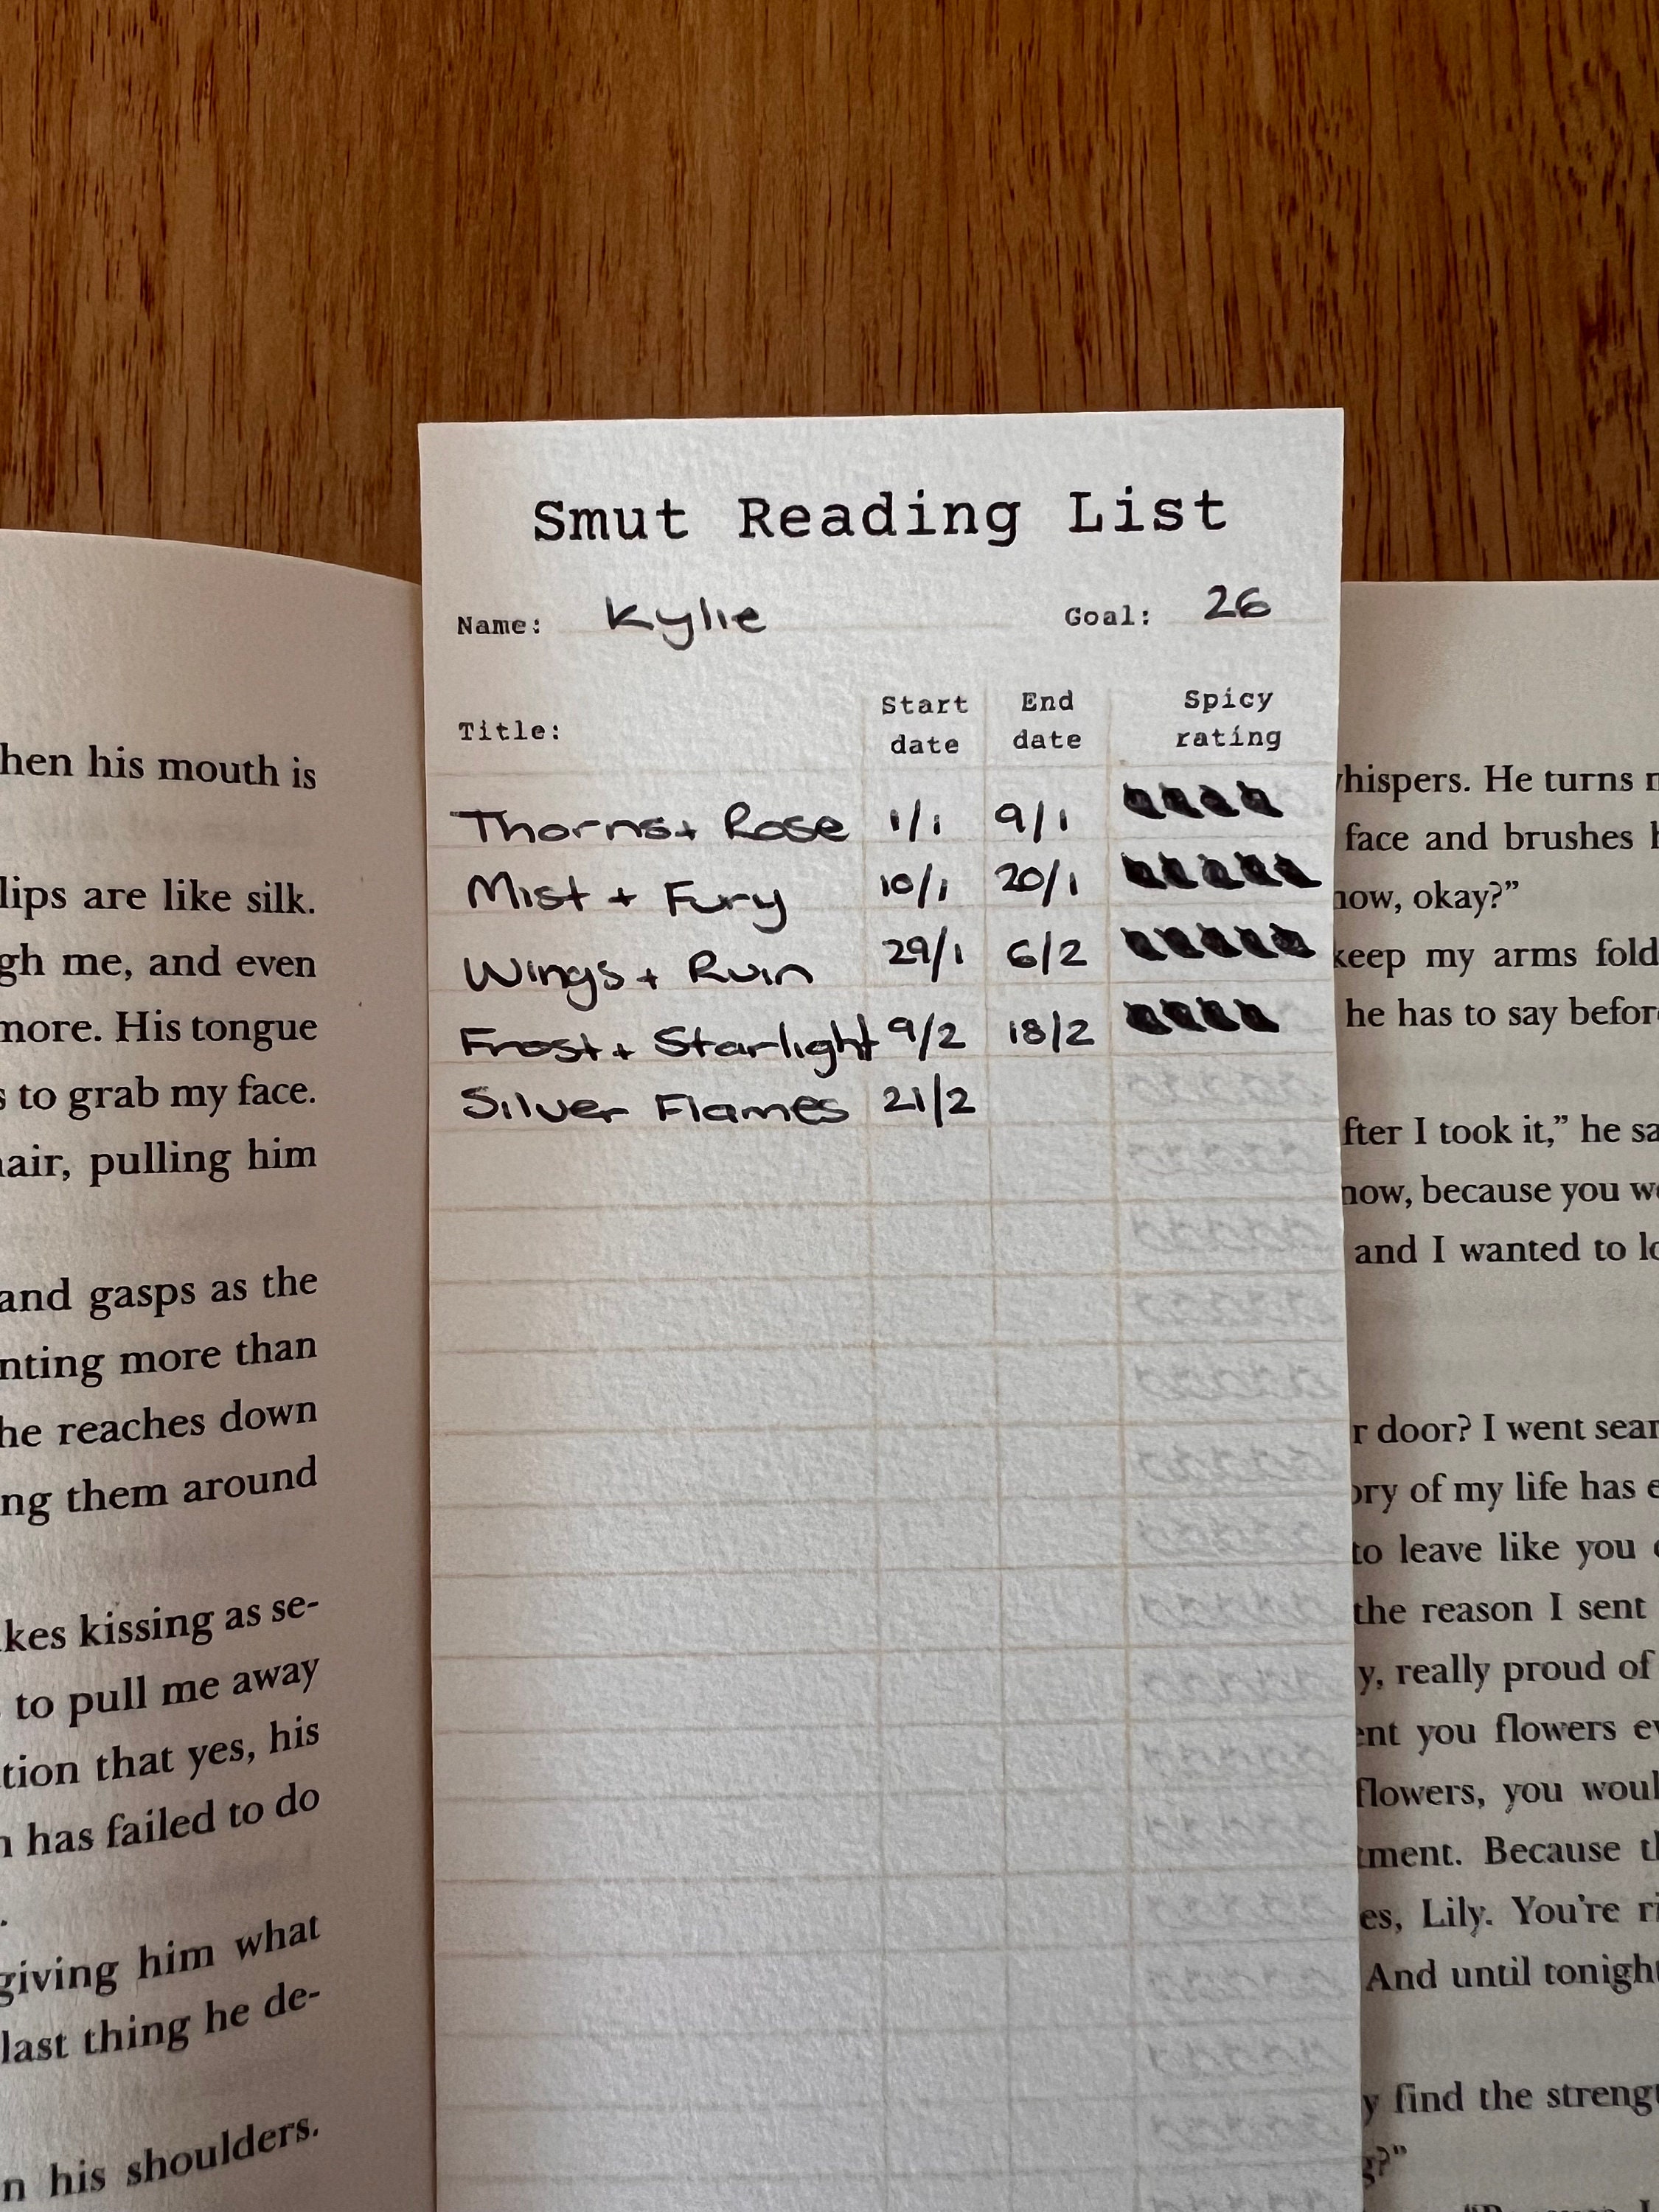 Smut Reading List
Name: Kylie Goal: 26
Title: Start date End date Spicy rating
Thorns + Rose 1/1 9/1
Mist + Fury 10/1 20/1
Wings + Ruin 29/1 6/2
Frost + Starlight 9/2 18/2
Silver Flames 21/2
his mouth is
lips are like silk.
me, and even
more. His tongue
to grab my face.
pulling him
and gasps as the
more than
he reaches down
them around
kissing as se-
to pull me away
that yes, his
has failed to do
giving him what
last thing he de-
his shoulders.
He turns
face and brushes
okay?”
keep my arms
he has to say
I took it,” he
because you
and I wanted to
door? I went
of my life has
to leave like you
the reason I sent
really proud of
you flowers
flowers, you
Because
Lily. You’re
And until
find the